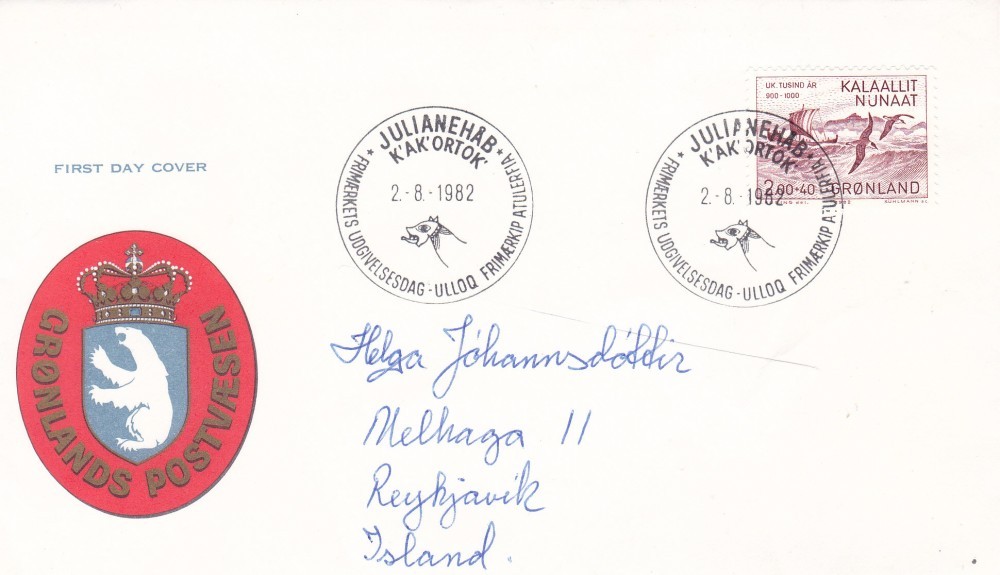 UK. TUSIND ÅR
900-1000
KALAALLIT
NUNAAT
2.00+40 GRØNLAND
1982
BÜHLMANN sc.
JULIANEHÅB
K'AK'ORTOK'
2.-8.-1982
★ FRIMÆRKETS UDGIVELSESDAG - ULLOQ FRIMÆRKIP ATULERFIA ★
JULIANEHÅB
K'AK'ORTOK'
2.-8.-1982
★ FRIMÆRKETS UDGIVELSESDAG - ULLOQ FRIMÆRKIP ATULERFIA
FIRST DAY COVER
GRØNLANDS POSTVÆSEN
Helga Jóhannsdóttir
Melhaga 11
Reykjavík
Ísland.